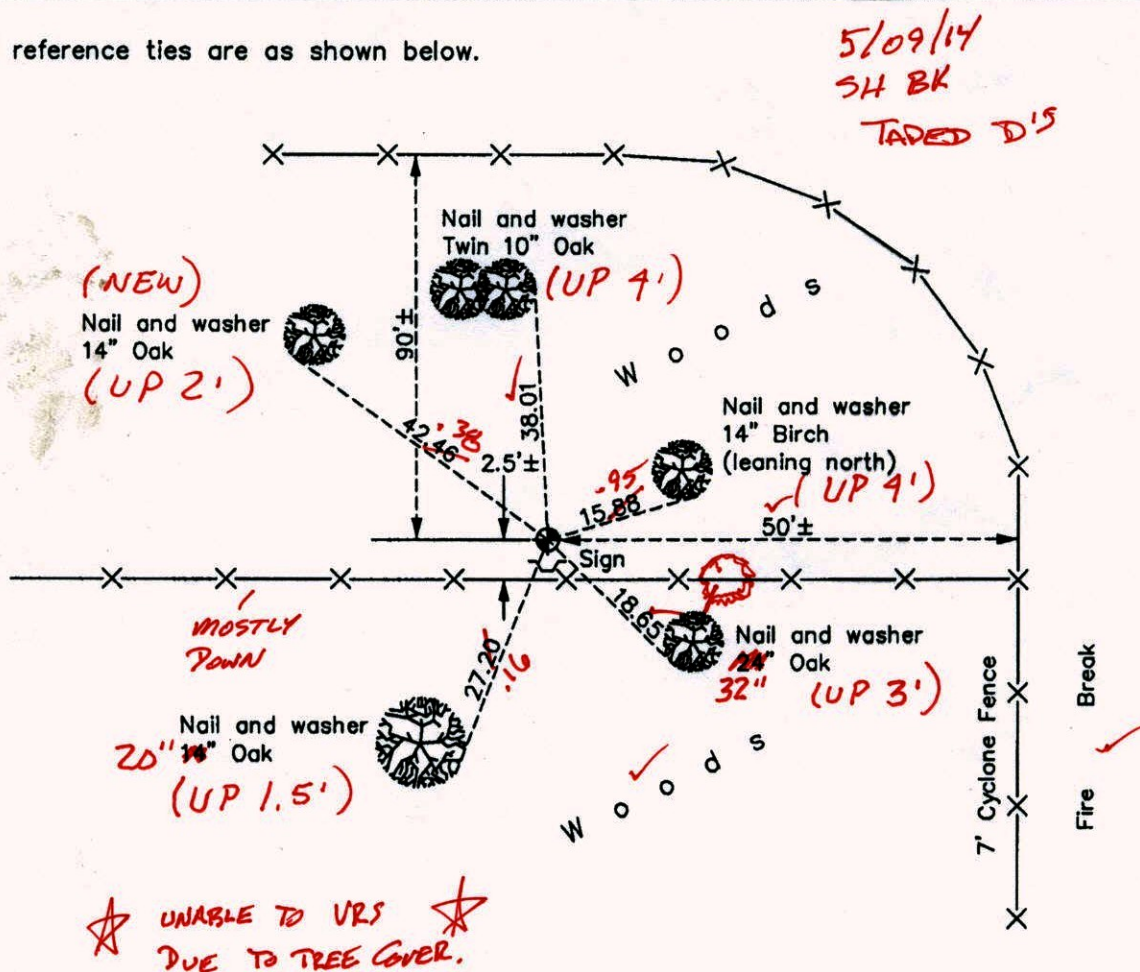 reference ties are as shown below.
5/09/14
SH BK
TAPED D'S
Nail and washer
Twin 10" Oak
(UP 4')
(NEW)
Nail and washer
14" Oak
(UP 2')
90'±
42.46
.38
38.01
2.5'±
Woods
Nail and washer
14" Birch
(leaning north)
(UP 4')
.95
15.88
50'±
Sign
18.65
MOSTLY
DOWN
27.20
.16
Nail and washer
24" Oak
32" (UP 3')
Nail and washer
20" 14" Oak
(UP 1.5')
Woods
7' Cyclone Fence
Fire Break
UNABLE TO VRS
DUE TO TREE COVER.